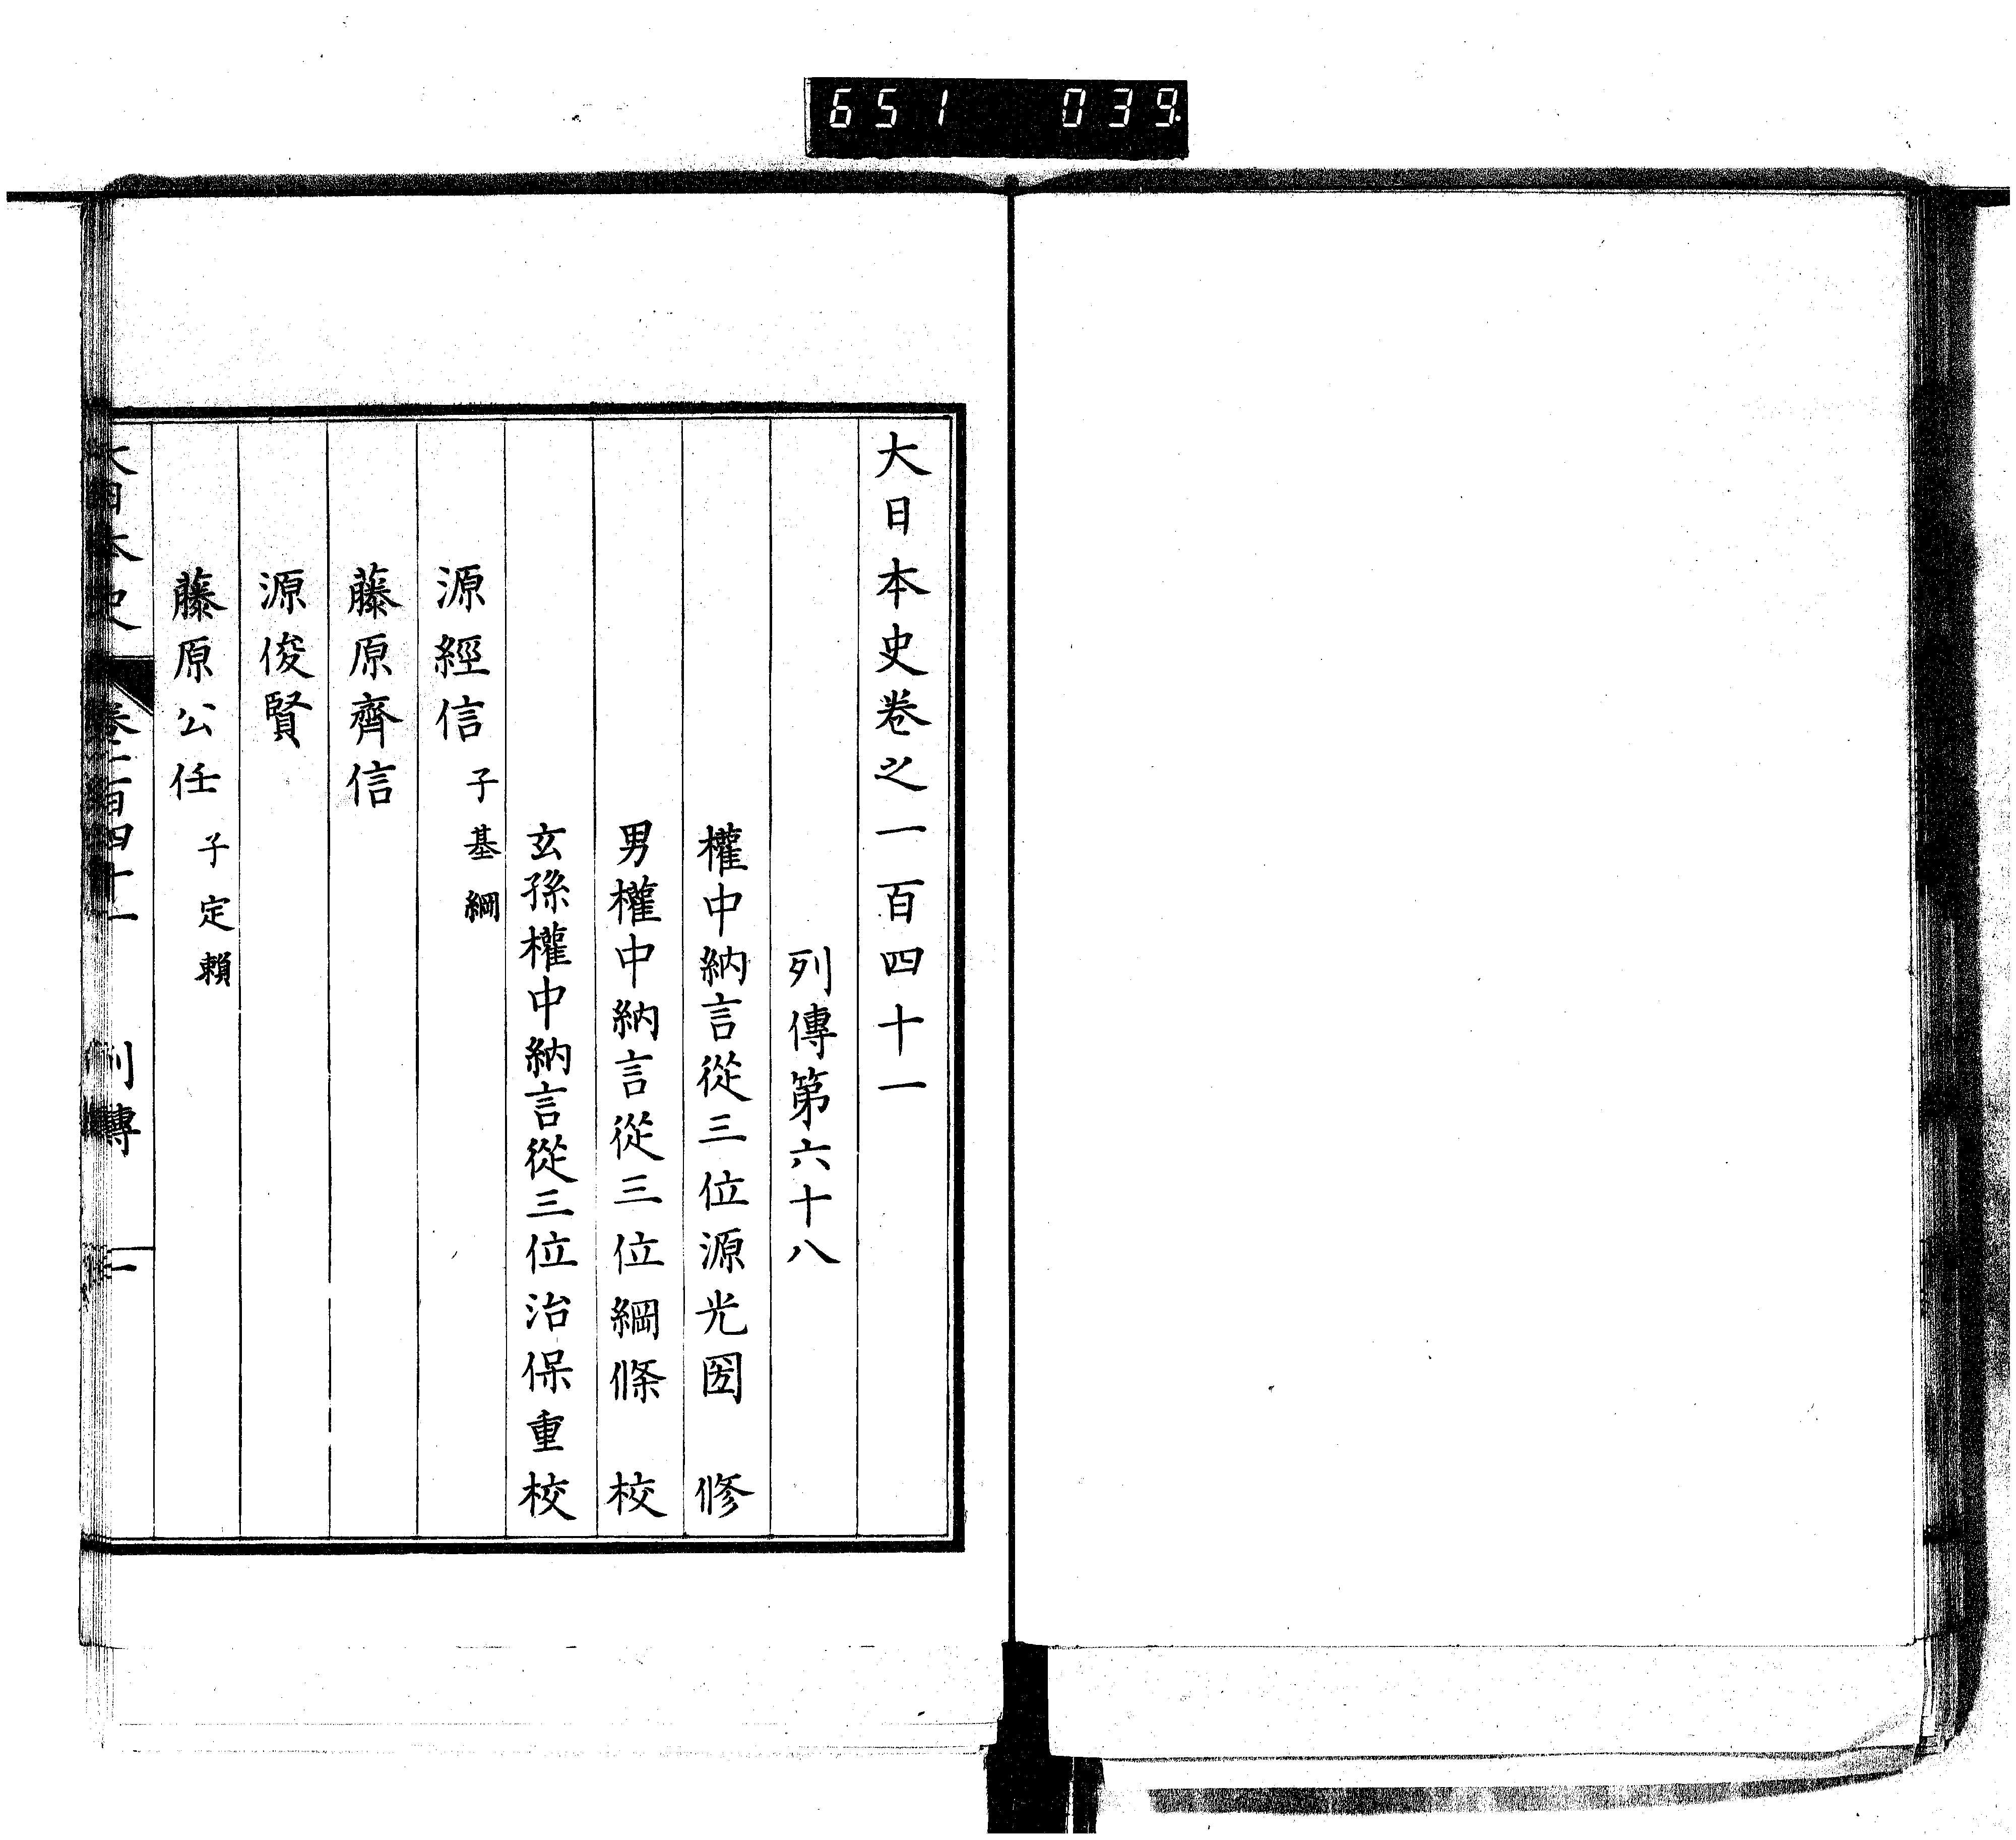 651 039
大日本史卷之一百四十一
列傳第六十八
權中納言從三位源光圀 修
男權中納言從三位綱條 校
玄孫權中納言從三位治保重校
源經信 子基綱
藤原齊信
源俊賢
藤原公任 子定賴
大日本史 卷一百四十一 列傳 一